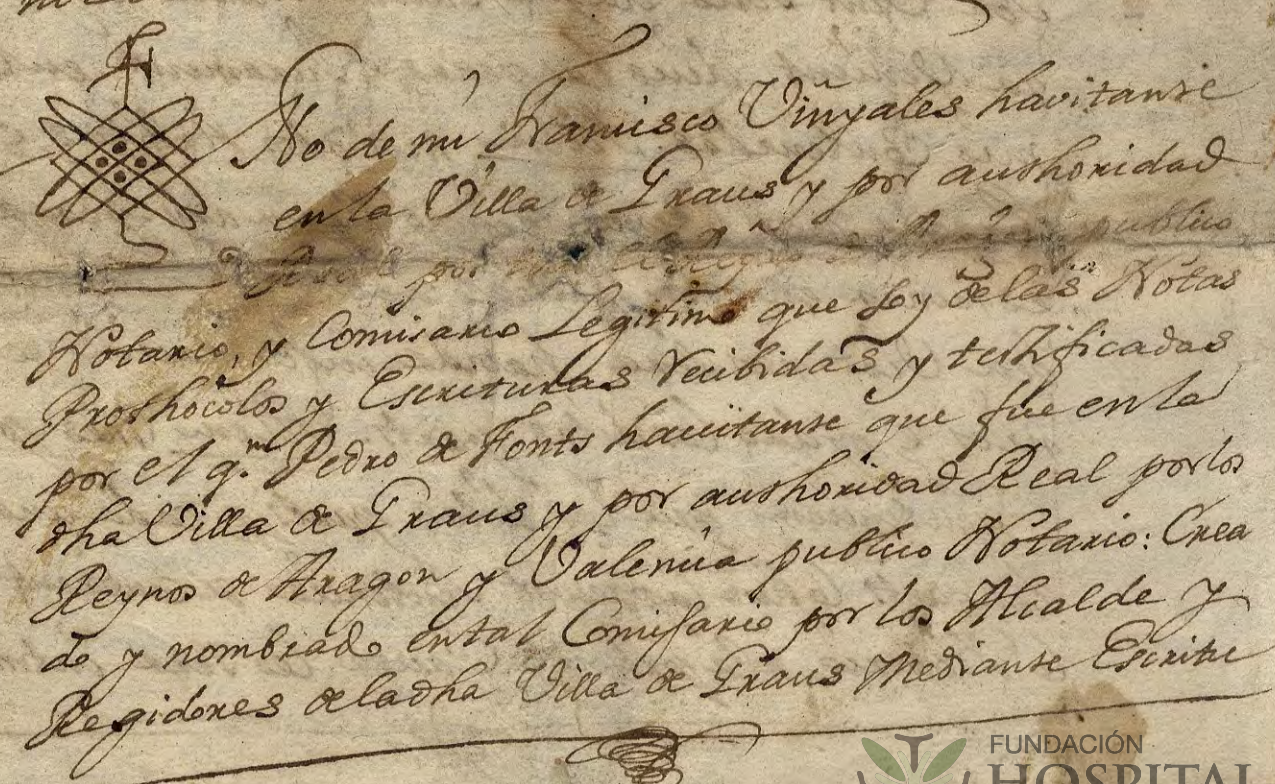 No de mi Francisco Viñyales havitante
en la Villa de Graus y por authoridad
Real por publico
Notario, y Comisario Legitimo que soy de las Notas
Prothocolos y Escrituras recibidas y testificadas
por el q.m Pedro de Fonts havitante que fue en la
dha Villa de Graus y por authoridad Real por los
Reynos de Aragon y Valencia publico Notario: Crea
do y nombrado en tal Comisario por los Alcalde y
Regidores de la dha Villa de Graus Mediante Escritu
FUNDACIÓN
HOSPITAL